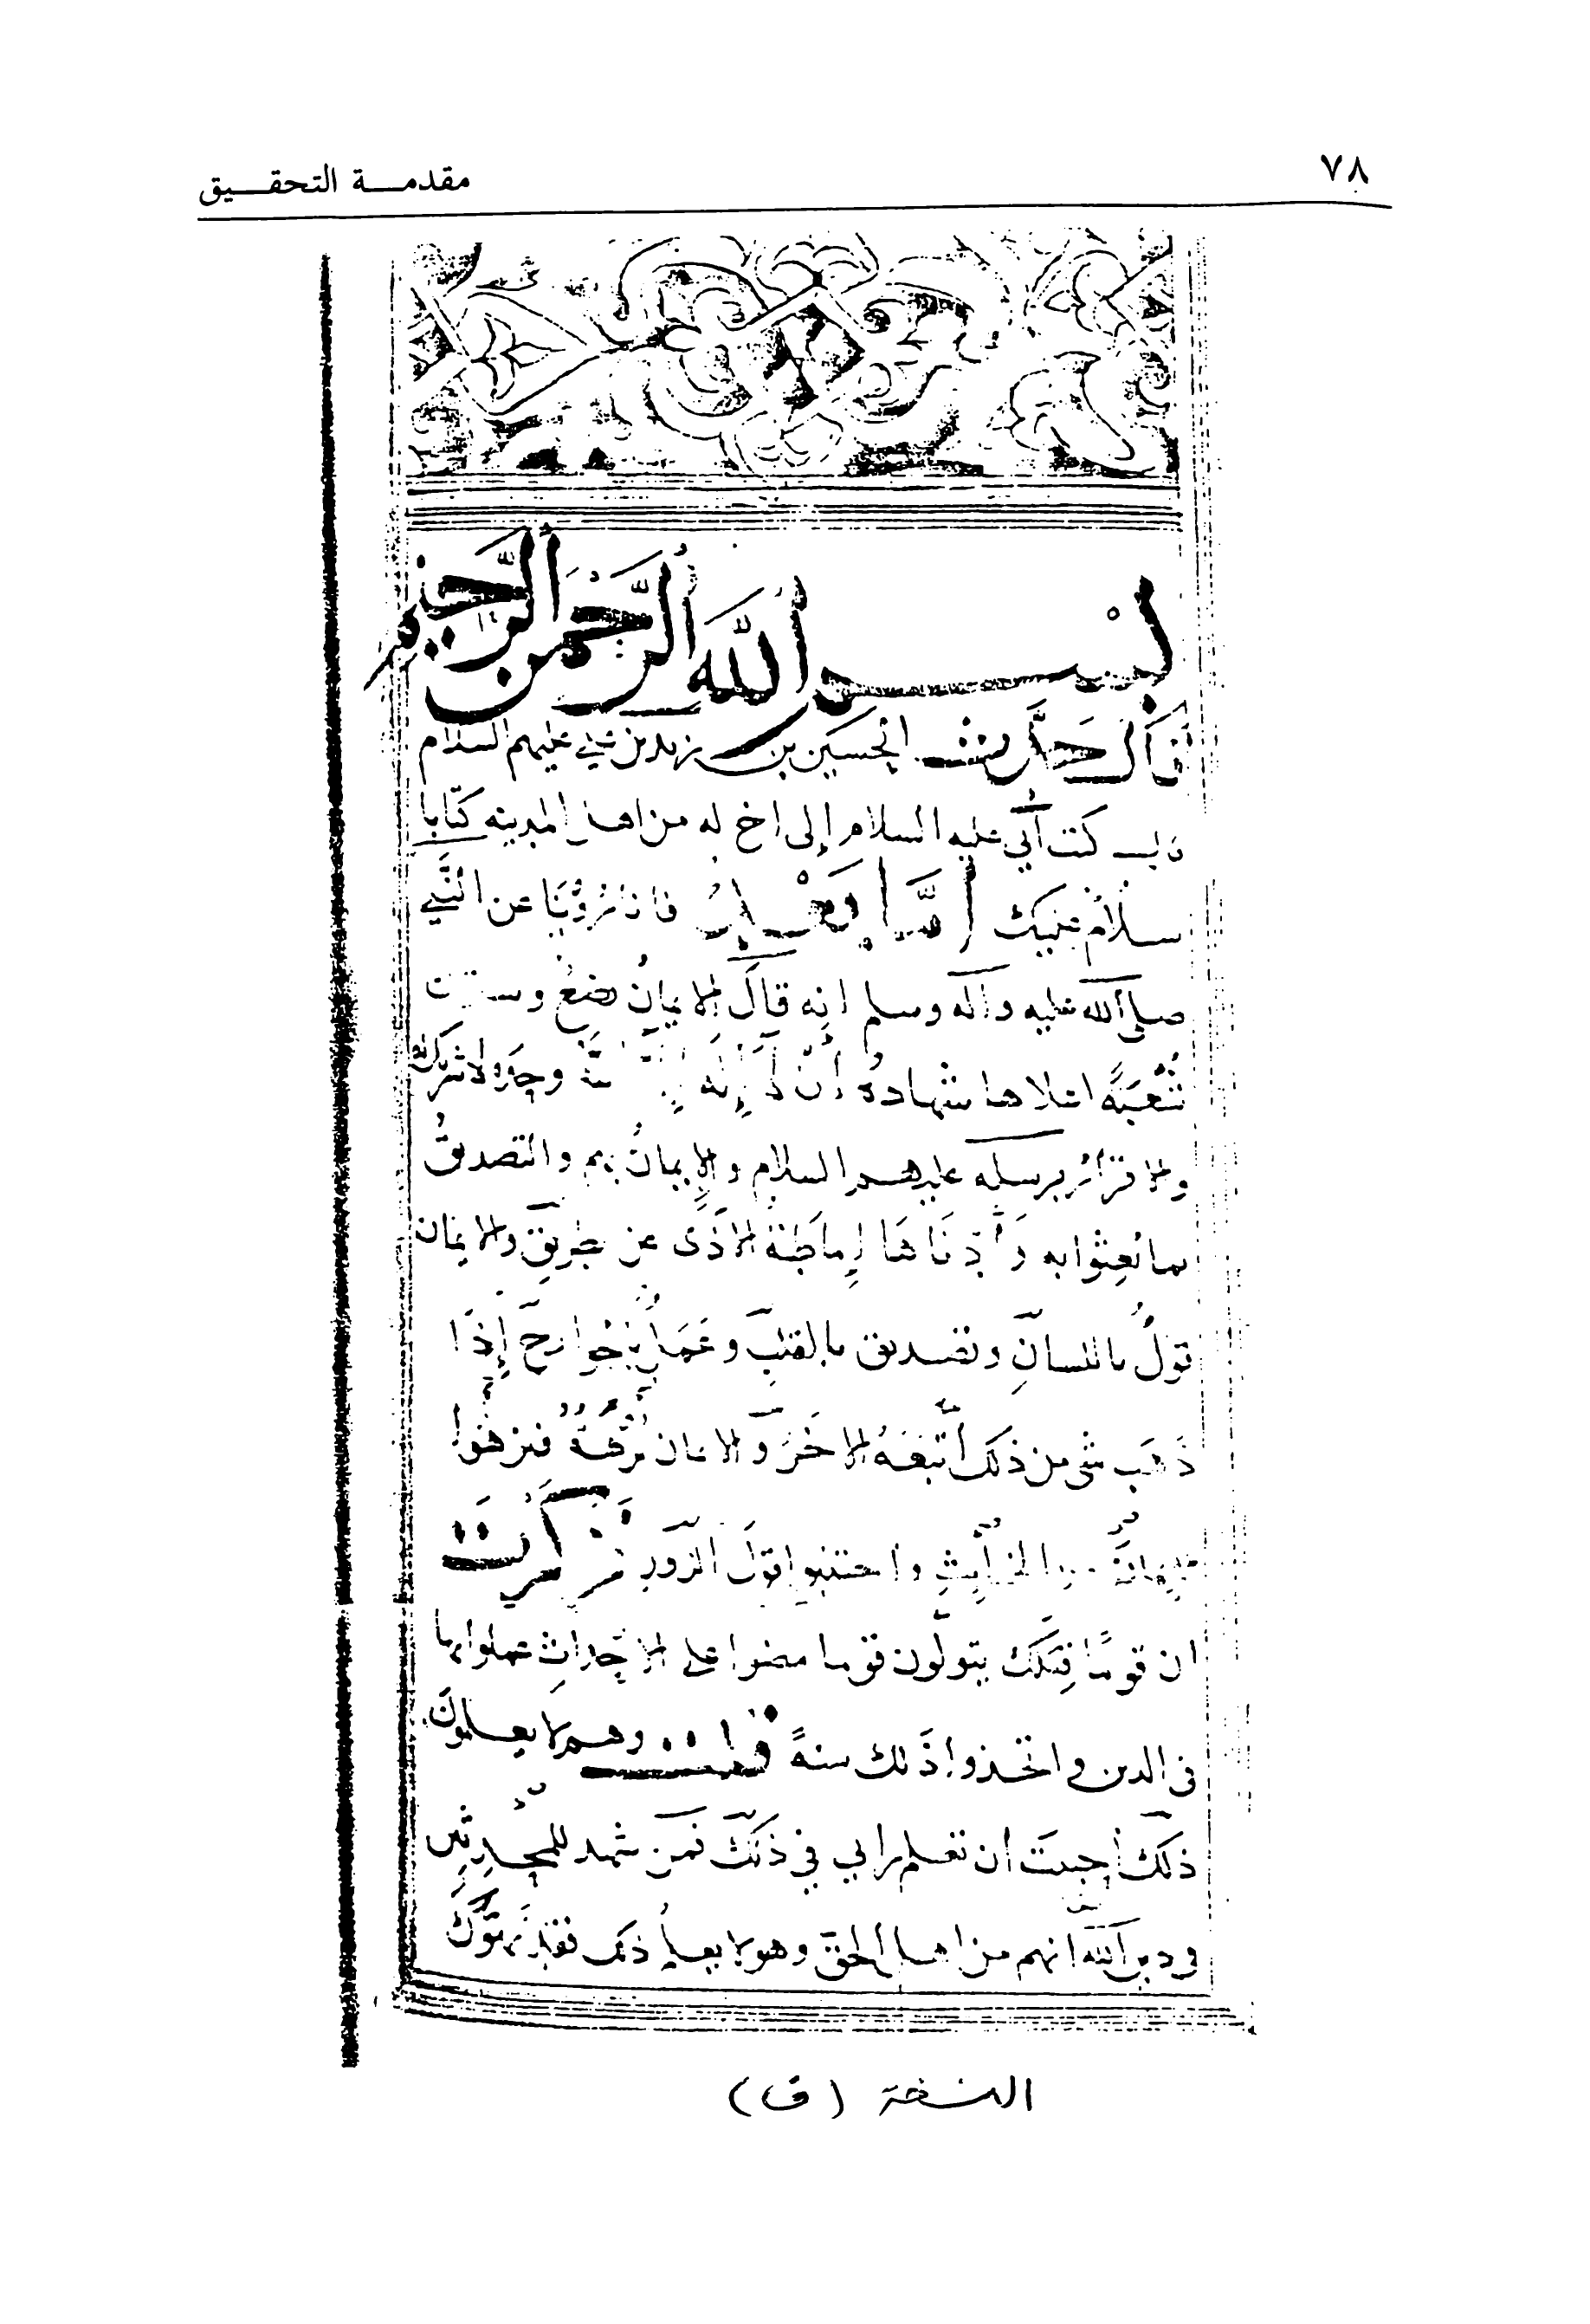 ٧٨
مقدمة التحقيق
بسم الله الرحمن الرحيم
قال حدثنا الحسين بن زيد بن علي عليهم السلام
كتب أبي عليه السلام إلى اخ له من اهل المدينه كتابا
سلام عليك اما بعد فانا رُوّينا عن النبي
صلى الله عليه وآله وسلم انه قال الإيمان بضع وستون
شعبة اعلاها شهادة أن لا إله إلا الله وحده لا شريك له
والاقرار برسله عليهم السلام والإيمان بهم والتصديق
بما بُعثوا به وأدناها إماطة الأذى عن طريق والايمان
قول باللسان وتصديق بالقلب وعمل بالجوارح إذا
ذهب شي من ذلك أتبعه الاخر والايمان نزهة فنزهوا
من الخبائث واجتنبوا قول الزور ذكرت
ان قوما قبلك يتولون قوما مضوا على الاحداث عملوا بها
في الدين واتخذوا ذلك سنة قلت وهم لا يعلمون
ذلك أحببت ان تعلم رايي في ذلك فمن شهد للمحدثين
في دين الله انهم من اهل الحق وهو لا يعلم ذلك فقد
النسخة (ف)